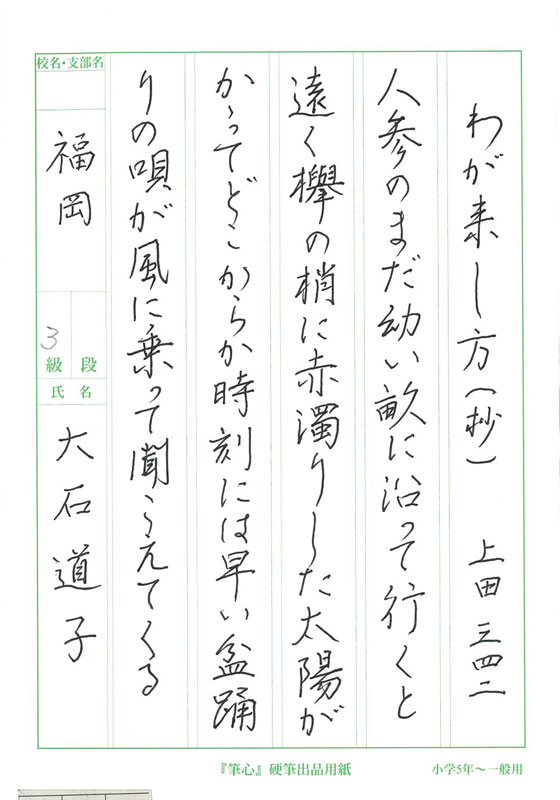 わが来し方(抄) 上田三四二
人参のまだ幼い畝に沿って行くと
遠く欅の梢に赤濁りした太陽が
かゝってどこからか時刻には早い盆踊
りの唄が風に乗って聞こえてくる
校名・支部名
福岡
3
級 段
氏名
大石道子
『筆心』硬筆出品用紙
小学5年〜一般用